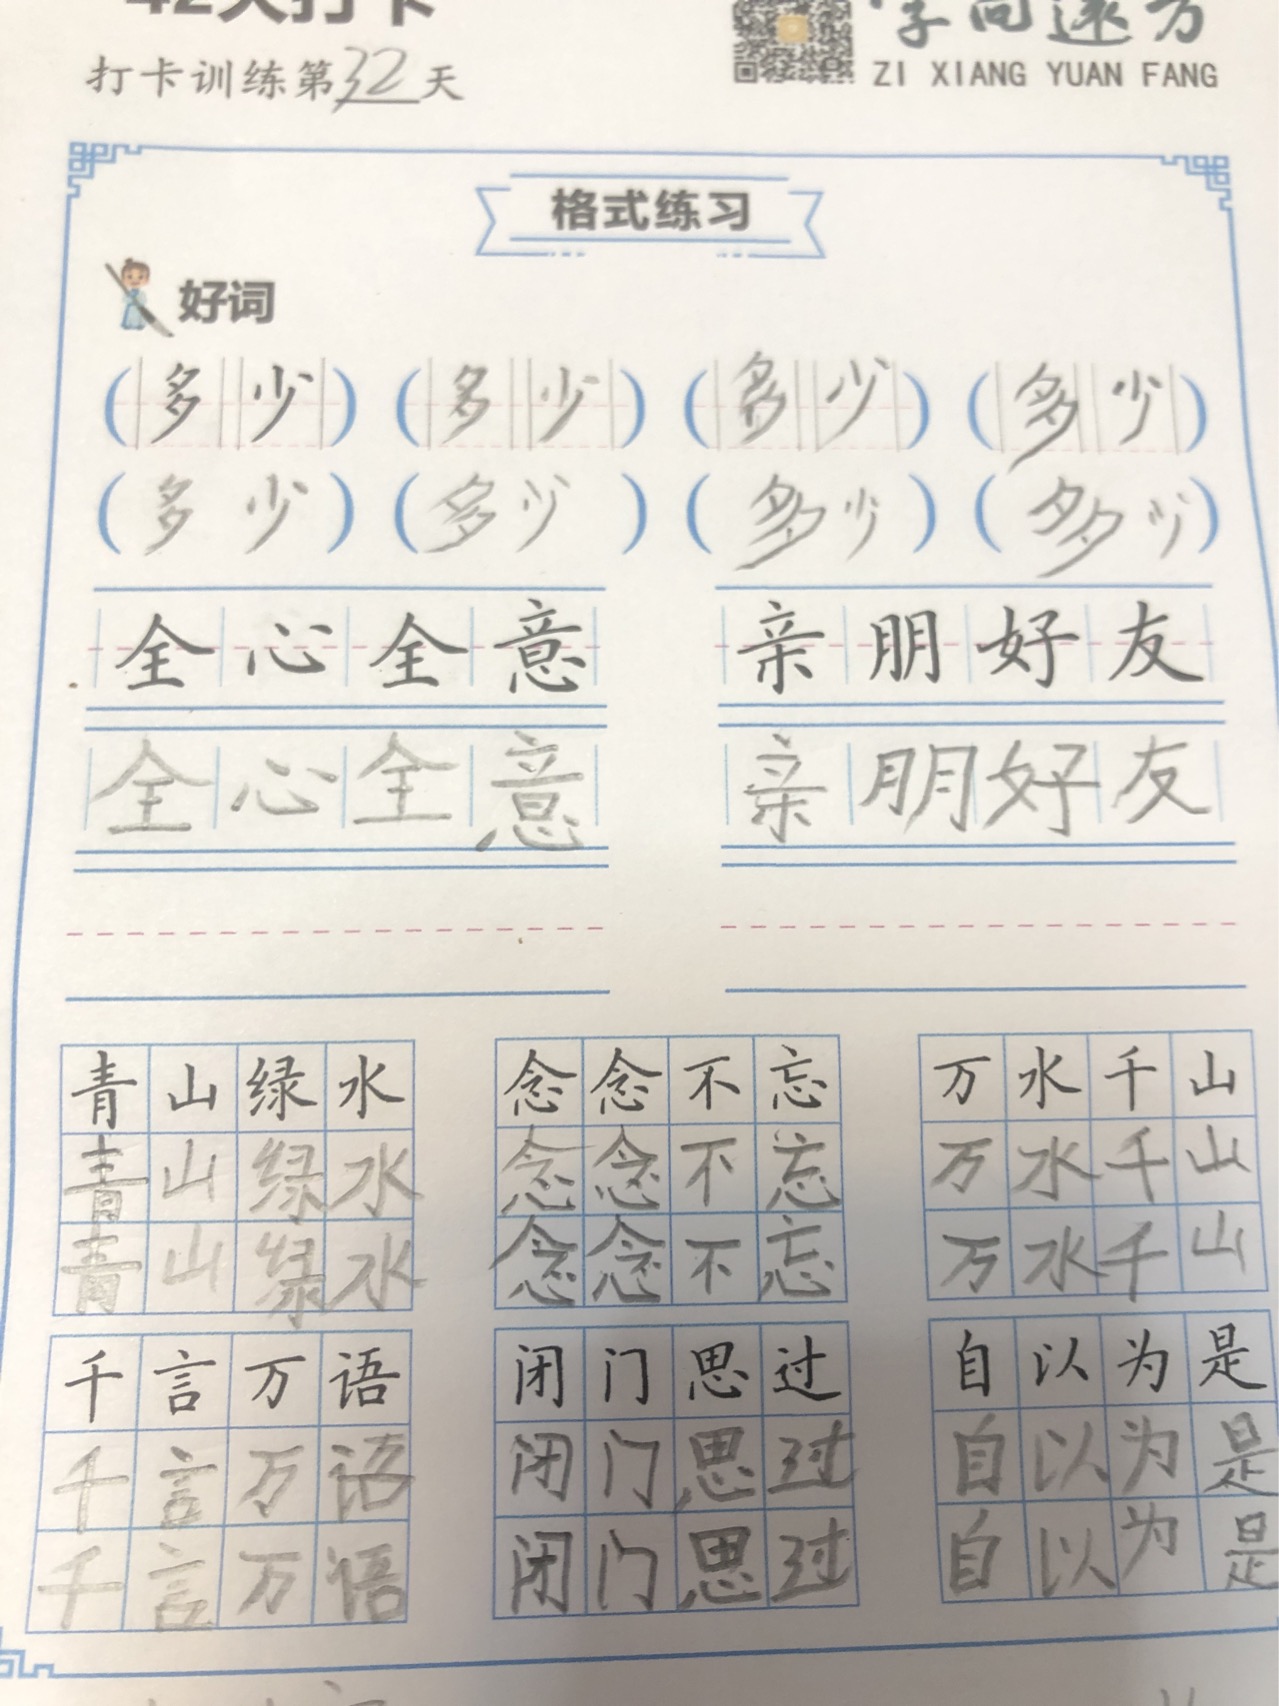 42天打卡
字向远方
打卡训练第32天
ZI XIANG YUAN FANG
格式练习
好词
(多少) (多少) (多少) (多少)
(多少) (多少) (多少) (多少)
全心全意 亲朋好友
全心全意 亲朋好友
青山绿水 念念不忘 万水千山
青山绿水 念念不忘 万水千山
青山绿水 念念不忘 万水千山
千言万语 闭门思过 自以为是
千言万语 闭门思过 自以为是
千言万语 闭门思过 自以为是